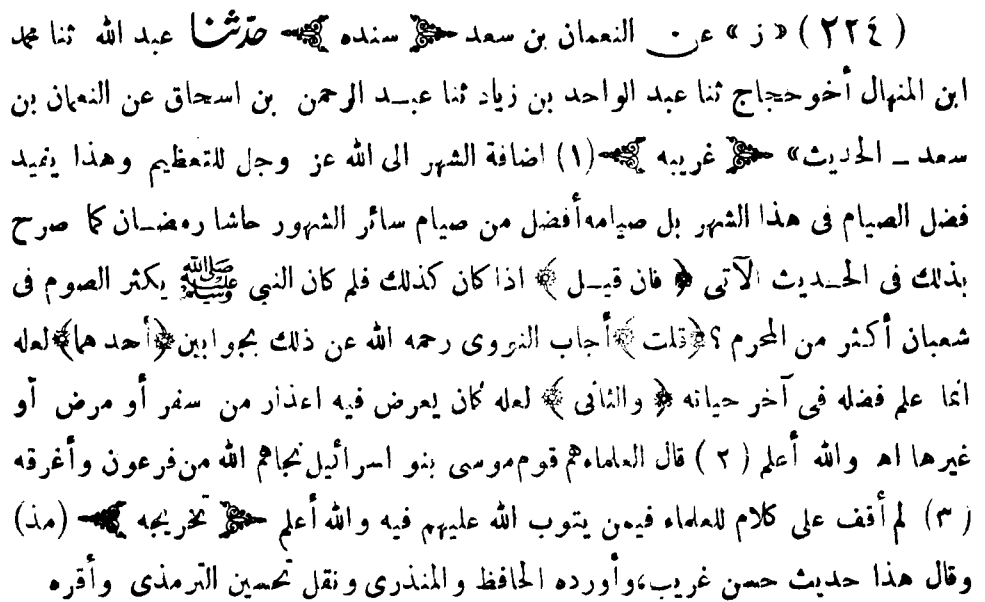 (٢٢٤) «ز» عن النعمان بن سعد ﴿ سنده ﴾ حدّثنا عبد الله ثنا محمد
ابن المنهال أخو حجاج ثنا عبد الواحد بن زياد ثنا عبد الرحمن بن اسحاق عن النعمان بن
سعد ــ الحديث» ﴿ غريبه ﴾ (١) اضافة الشهر الى الله عز وجل للتعظيم وهذا يفيد
فضل الصيام فى هذا الشهر بل صيامه أفضل من صيام سائر الشهور حاشا رمضان كما صرح
بذلك فى الحديث الآتى ﴿ فان قيل ﴾ اذا كان كذلك فلم كان النبى ﷺ يكثر الصوم فى
شعبان أكثر من المحرم ؟ ﴿قلت﴾ أجاب النووى رحمه الله عن ذلك بجوابين ﴿أحدهما﴾ لعله
انما علم فضله فى آخر حياته ﴿ والثانى ﴾ لعله كان يعرض فيه اعذار من سفر أو مرض أو
غيرها اهـ والله أعلم (٢) قال العلماء هم قوم موسى بنو اسرائيل نجاهم الله من فرعون وأغرقه
(٣) لم أقف على كلام للعلماء فيمن يتوب الله عليهم فيه والله أعلم ﴿ تخريجه ﴾ (مذ)
وقال هذا حديث حسن غريب، وأورده الحافظ والمنذرى ونقل تحسين الترمذى وأقره